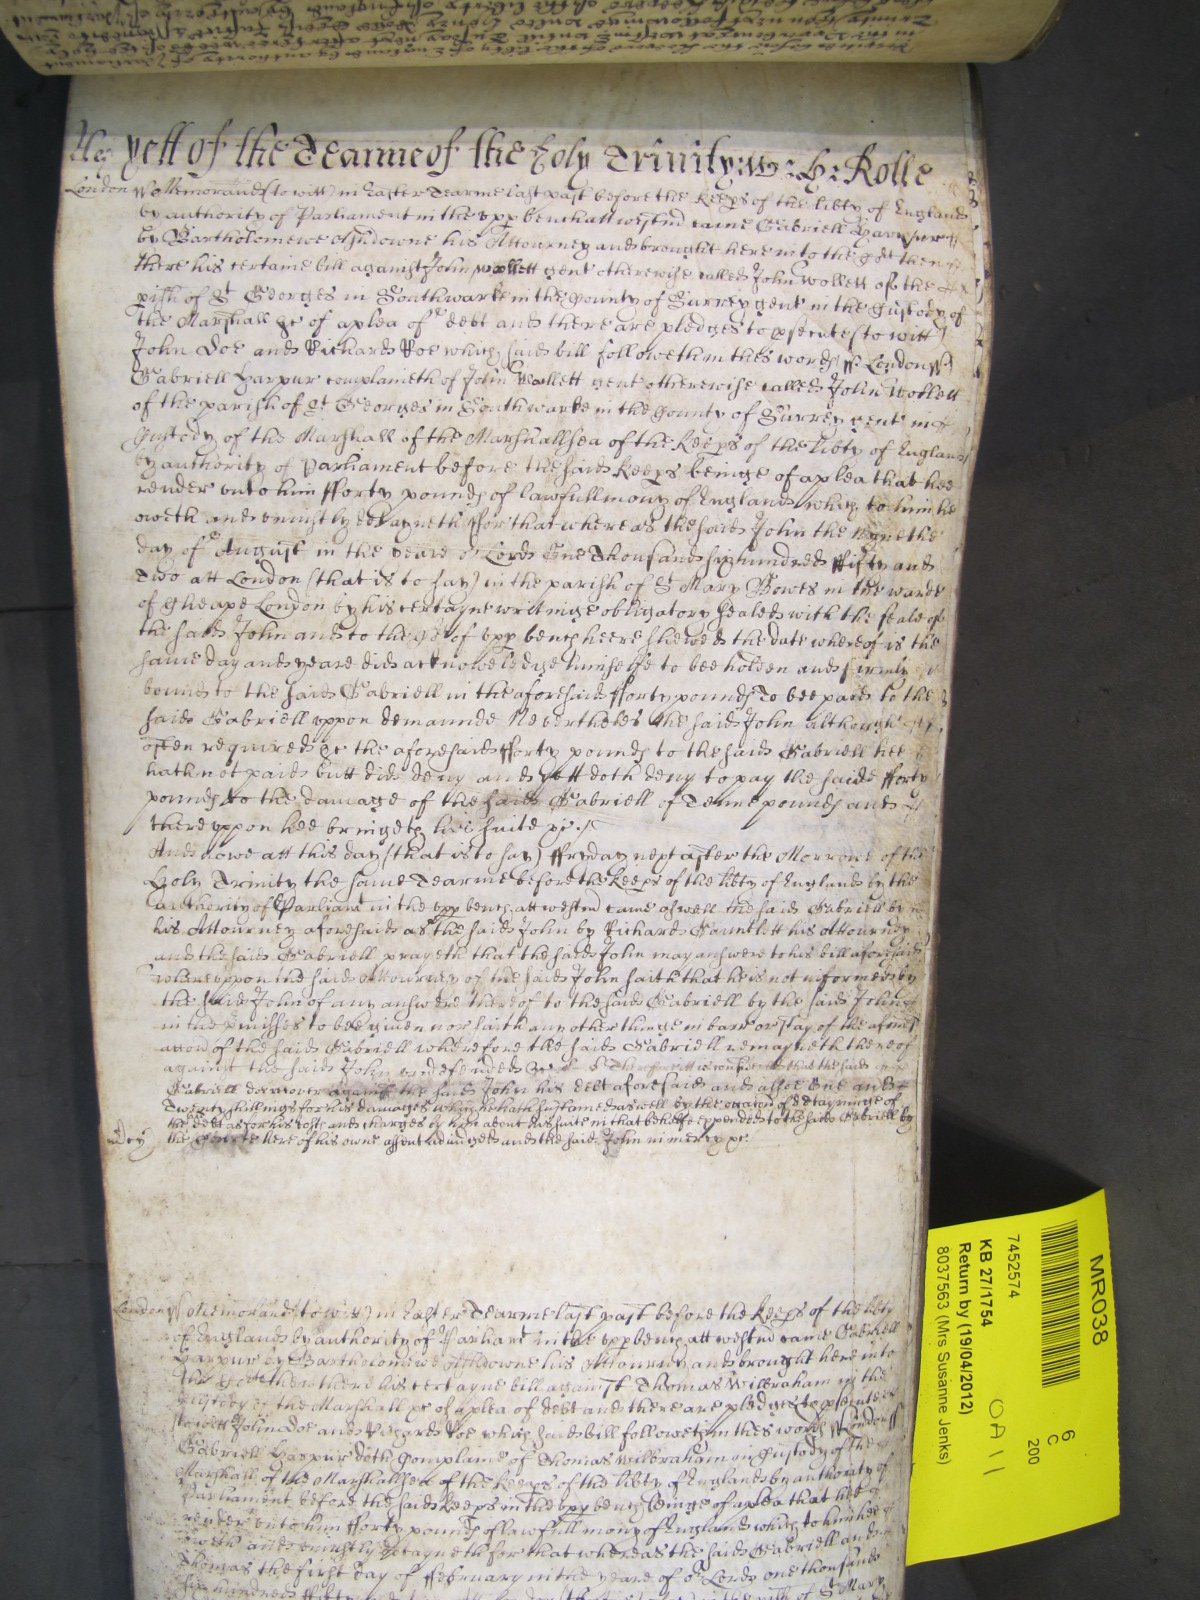 yett of the Tearme of the holy Trinity: Rolle
London Memorand (to witt) in Easter Tearme last past before the Keeps of the libty of England
by authority of Parliament in the upp bench att westm came Gabriell Harpur
by Bartholomewe Ashdowne his Attourney and brought here into the then
there his certaine bill against John Wollett gent otherwise called John Wollett of the
pish of St Georges in Southwarke in the County of Surrey gent in the Custody of
the Marshall &c of a plea of debt and there are pledges to psecute (to witt)
John Doe and Richard Roe which said bill followeth in thes words ss London ss
Gabriell Harpur complaineth of John Wollett gent otherwise called John Wollett
of the parish of St Georges in Southwarke in the County of Surrey gent in
Custody of the Marshall of the Marshallsea of the Keeps of the libty of England
by authority of Parliament before the said Keeps beinge of a plea that hee
render unto him fforty pounds of lawfull mony of England which to him he
oweth and uniustly detayneth ffor that whereas the said John the the
day of August in the yeare or Lord One Thousand six hundred ffifty and
Two att London (that is to say) in the parish of St Mary Bowes in the warde
of Cheape London by his certayne writinge obligatory sealed with the seale of
the said John and to the Ct of upp bench heere shewed the date whereof is the
same day and yeare did acknowledge himselfe to bee holden and firmly
bound to the said Gabriell in the aforesaid fforty pounds To bee paid to the
said Gabriell uppon demaunde Neverthelesse the said John although
often required &c the aforesaid fforty pounds to the said Gabriell hee
hath not paid butt did deny and yett doth deny to pay the said fforty
pounds to the damage of the said Gabriell of Tenne pounds and
thereuppon hee bringeth his suite &c
And nowe att this day (that is to say) ffryday next after the Morrowe of the
Holy Trinity the same Tearme before the Keeps of the libty of England by the
authority of Parliamt in the upp bench att westm came aswell the said Gabriell by
his Attourney aforesaid as the said John by Richard Gauntlett his Attourney
and the said Gabriell prayeth that the said John may answere to his bill aforesaid
whereuppon the said Attourney of the said John saith that he is not informed by
the said John of any answere thereof to the said Gabriell by the said John
in the pmisses to bee given nor saith any other thinge in barr or stay of the
accon of the said Gabriell wherefore the said Gabriell remayneth thereof
against the said John undefended &c Therefore it is considered that the said
Gabriell doe recover against the said John his debt aforesaid and alsoe One and
Twenty shillings for his damages which he hath sustained aswell by the occasion of detayninge of
the debt as for his costs and charges by him about his suite in that behalfe expended to the said Gabriell by
the Courte here of his owne assent adiudged and the said John in mercy &c
mcy
London ss Memorand (to witt) in Easter Tearme last past before the Keeps of the libty
of England by authority of Parliamt in the upp bench att westm came Gabriell
Harpur by Bartholomewe Ashdowne his Attourney and brought here into
the then there his certayne bill against Thomas Wilbraham in the
Custody of the Marshall &c of a plea of debt and there are pledges to psecute
to witt John Doe and Richard Roe which said bill followeth in thes words ss London ss
Gabriell Harpur doth Complaine of Thomas Wilbraham in Custody of the
Marshall of the Marshallsea of the Keeps of the libty of England by authority of
Parliament before the said Keeps in the upp bench beinge of a plea that hee
render unto him fforty pounds of lawfull mony of England which to him hee
oweth and uniustly detayneth for that whereas the said Gabriell and
Thomas the first day of ffebruary in the yeare of or Lord one thousand
six hundred ffifty St Mary
MR038
6
C
200
7452574
KB 27/1754
Return by (19/04/2012)
8037563 (Mrs Susanne Jenks)
OA 11